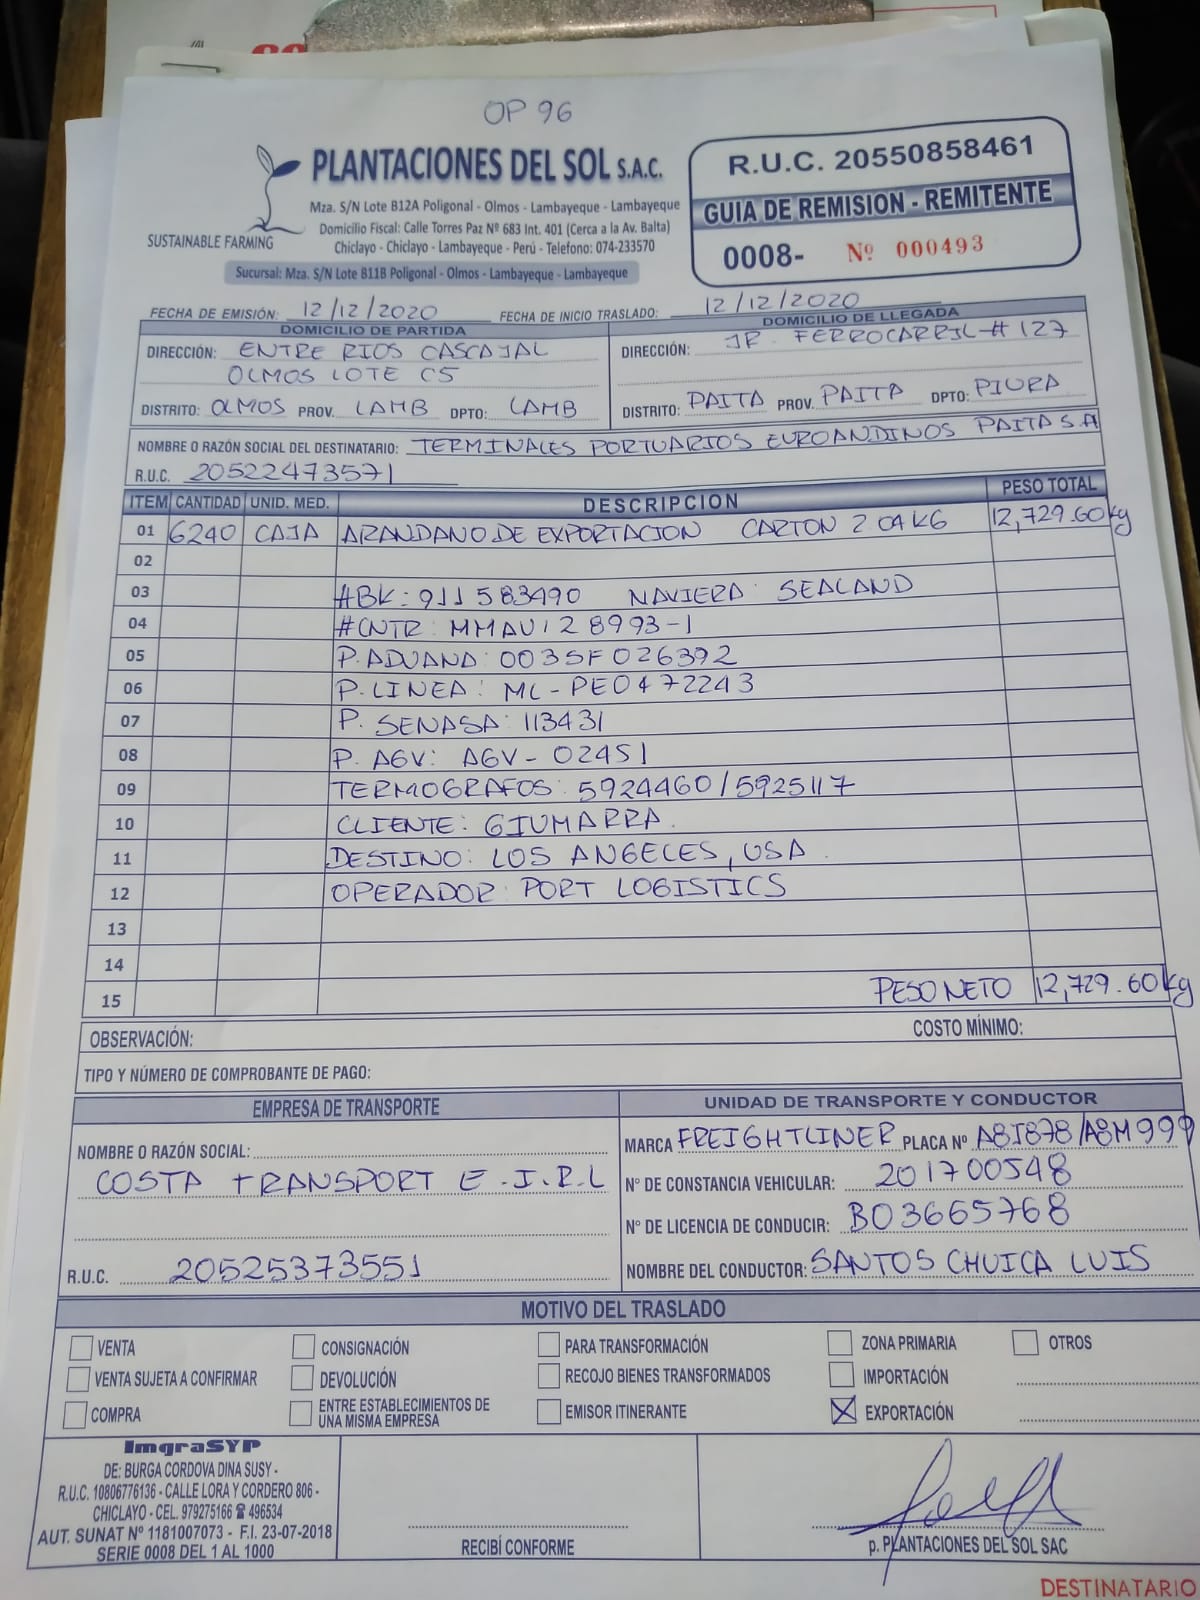 OP 96
PLANTACIONES DEL SOL S.A.C.
SUSTAINABLE FARMING
Mza. S/N Lote B12A Poligonal - Olmos - Lambayeque - Lambayeque
Domicilio Fiscal: Calle Torres Paz Nº 683 Int. 401 (Cerca a la Av. Balta)
Chiclayo - Chiclayo - Lambayeque - Perú - Telefono: 074-233570
Sucursal: Mza. S/N Lote B11B Poligonal - Olmos - Lambayeque - Lambayeque
R.U.C. 20550858461
GUIA DE REMISION - REMITENTE
0008- Nº 000493
FECHA DE EMISIÓN: 12/12/2020 FECHA DE INICIO TRASLADO: 12/12/2020
DOMICILIO DE PARTIDA
DIRECCIÓN: ENTRE RIOS CASCAJAL
OLMOS LOTE C5
DISTRITO: OLMOS PROV. LAMB DPTO: LAMB
DOMICILIO DE LLEGADA
DIRECCIÓN: JR. FERROCARRIL # 127
DISTRITO: PAITA PROV. PAITA DPTO: PIURA
NOMBRE O RAZÓN SOCIAL DEL DESTINATARIO: TERMINALES PORTUARIOS EUROANDINOS PAITA S.A
R.U.C. 20522473571
ITEM CANTIDAD UNID. MED. DESCRIPCION PESO TOTAL
01 6240 CAJA ARANDANO DE EXPORTACION CARTON 2.04 KG 12,729.60kg
02
03 #BK: 911583490 NAVIERA: SEALAND
04 #CNTR: MMAU128993-1
05 P.ADUANA: 0035F026392
06 P.LINEA: ML-PE0472243
07 P. SENASA: 113431
08 P. AGV: AGV-02451
09 TERMOGRAFOS: 5924460/5925117
10 CLIENTE: GIUMARRA.
11 DESTINO: LOS ANGELES, USA.
12 OPERADOR: PORT LOGISTICS
13
14
15 PESO NETO 12,729.60kg
OBSERVACIÓN: COSTO MÍNIMO:
TIPO Y NÚMERO DE COMPROBANTE DE PAGO:
EMPRESA DE TRANSPORTE
NOMBRE O RAZÓN SOCIAL:
COSTA TRANSPORT E.I.R.L
R.U.C. 20525373551
UNIDAD DE TRANSPORTE Y CONDUCTOR
MARCA FREIGHTLINER PLACA Nº A8I878/A8M999
Nº DE CONSTANCIA VEHICULAR: 201700548
Nº DE LICENCIA DE CONDUCIR: B03665768
NOMBRE DEL CONDUCTOR: SANTOS CHUICA LUIS
MOTIVO DEL TRASLADO
VENTA CONSIGNACIÓN PARA TRANSFORMACIÓN ZONA PRIMARIA OTROS
VENTA SUJETA A CONFIRMAR DEVOLUCIÓN RECOJO BIENES TRANSFORMADOS IMPORTACIÓN
COMPRA ENTRE ESTABLECIMIENTOS DE UNA MISMA EMPRESA EMISOR ITINERANTE EXPORTACIÓN
ImgraSYP
DE: BURGA CORDOVA DINA SUSY -
R.U.C. 10806776136 - CALLE LORA Y CORDERO 806 -
CHICLAYO - CEL. 979275166 ☎ 496534
AUT. SUNAT Nº 1181007073 - F.I. 23-07-2018
SERIE 0008 DEL 1 AL 1000
RECIBÍ CONFORME
p. PLANTACIONES DEL SOL SAC
DESTINATARIO